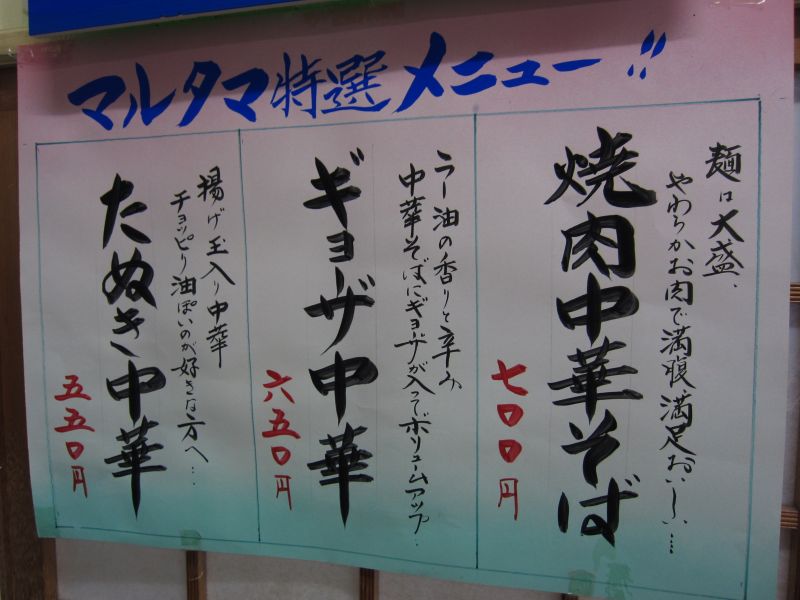 マルタマ特選メニュー!!
麺は大盛、
やわらかお肉で満腹、満足おいしい…
焼肉中華そば
七〇〇円
ラー油の香りと辛み、
中華そばにギョーザが入ってボリュームアップ…
ギョーザ中華
六五〇円
揚げ玉入り中華
チョッピリ油ぽいのが好きな方へ…
たぬき中華
五五〇円